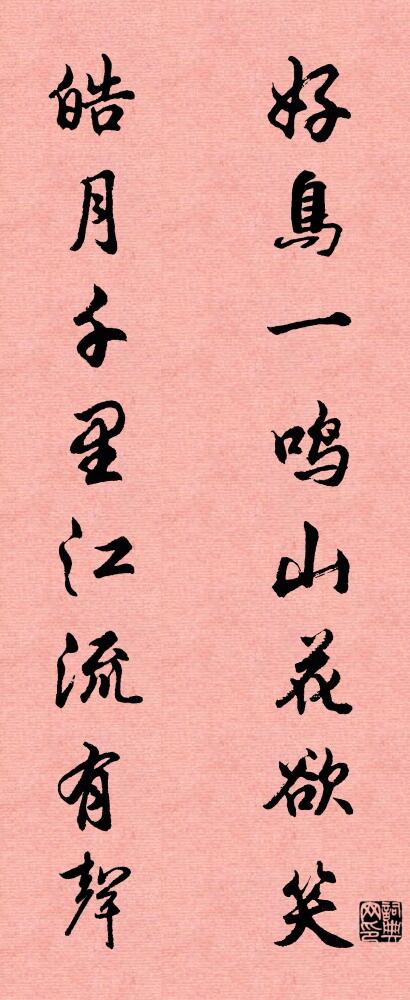 好鳥一鳴山花欲笑
皓月千里江流有聲
詞典网印